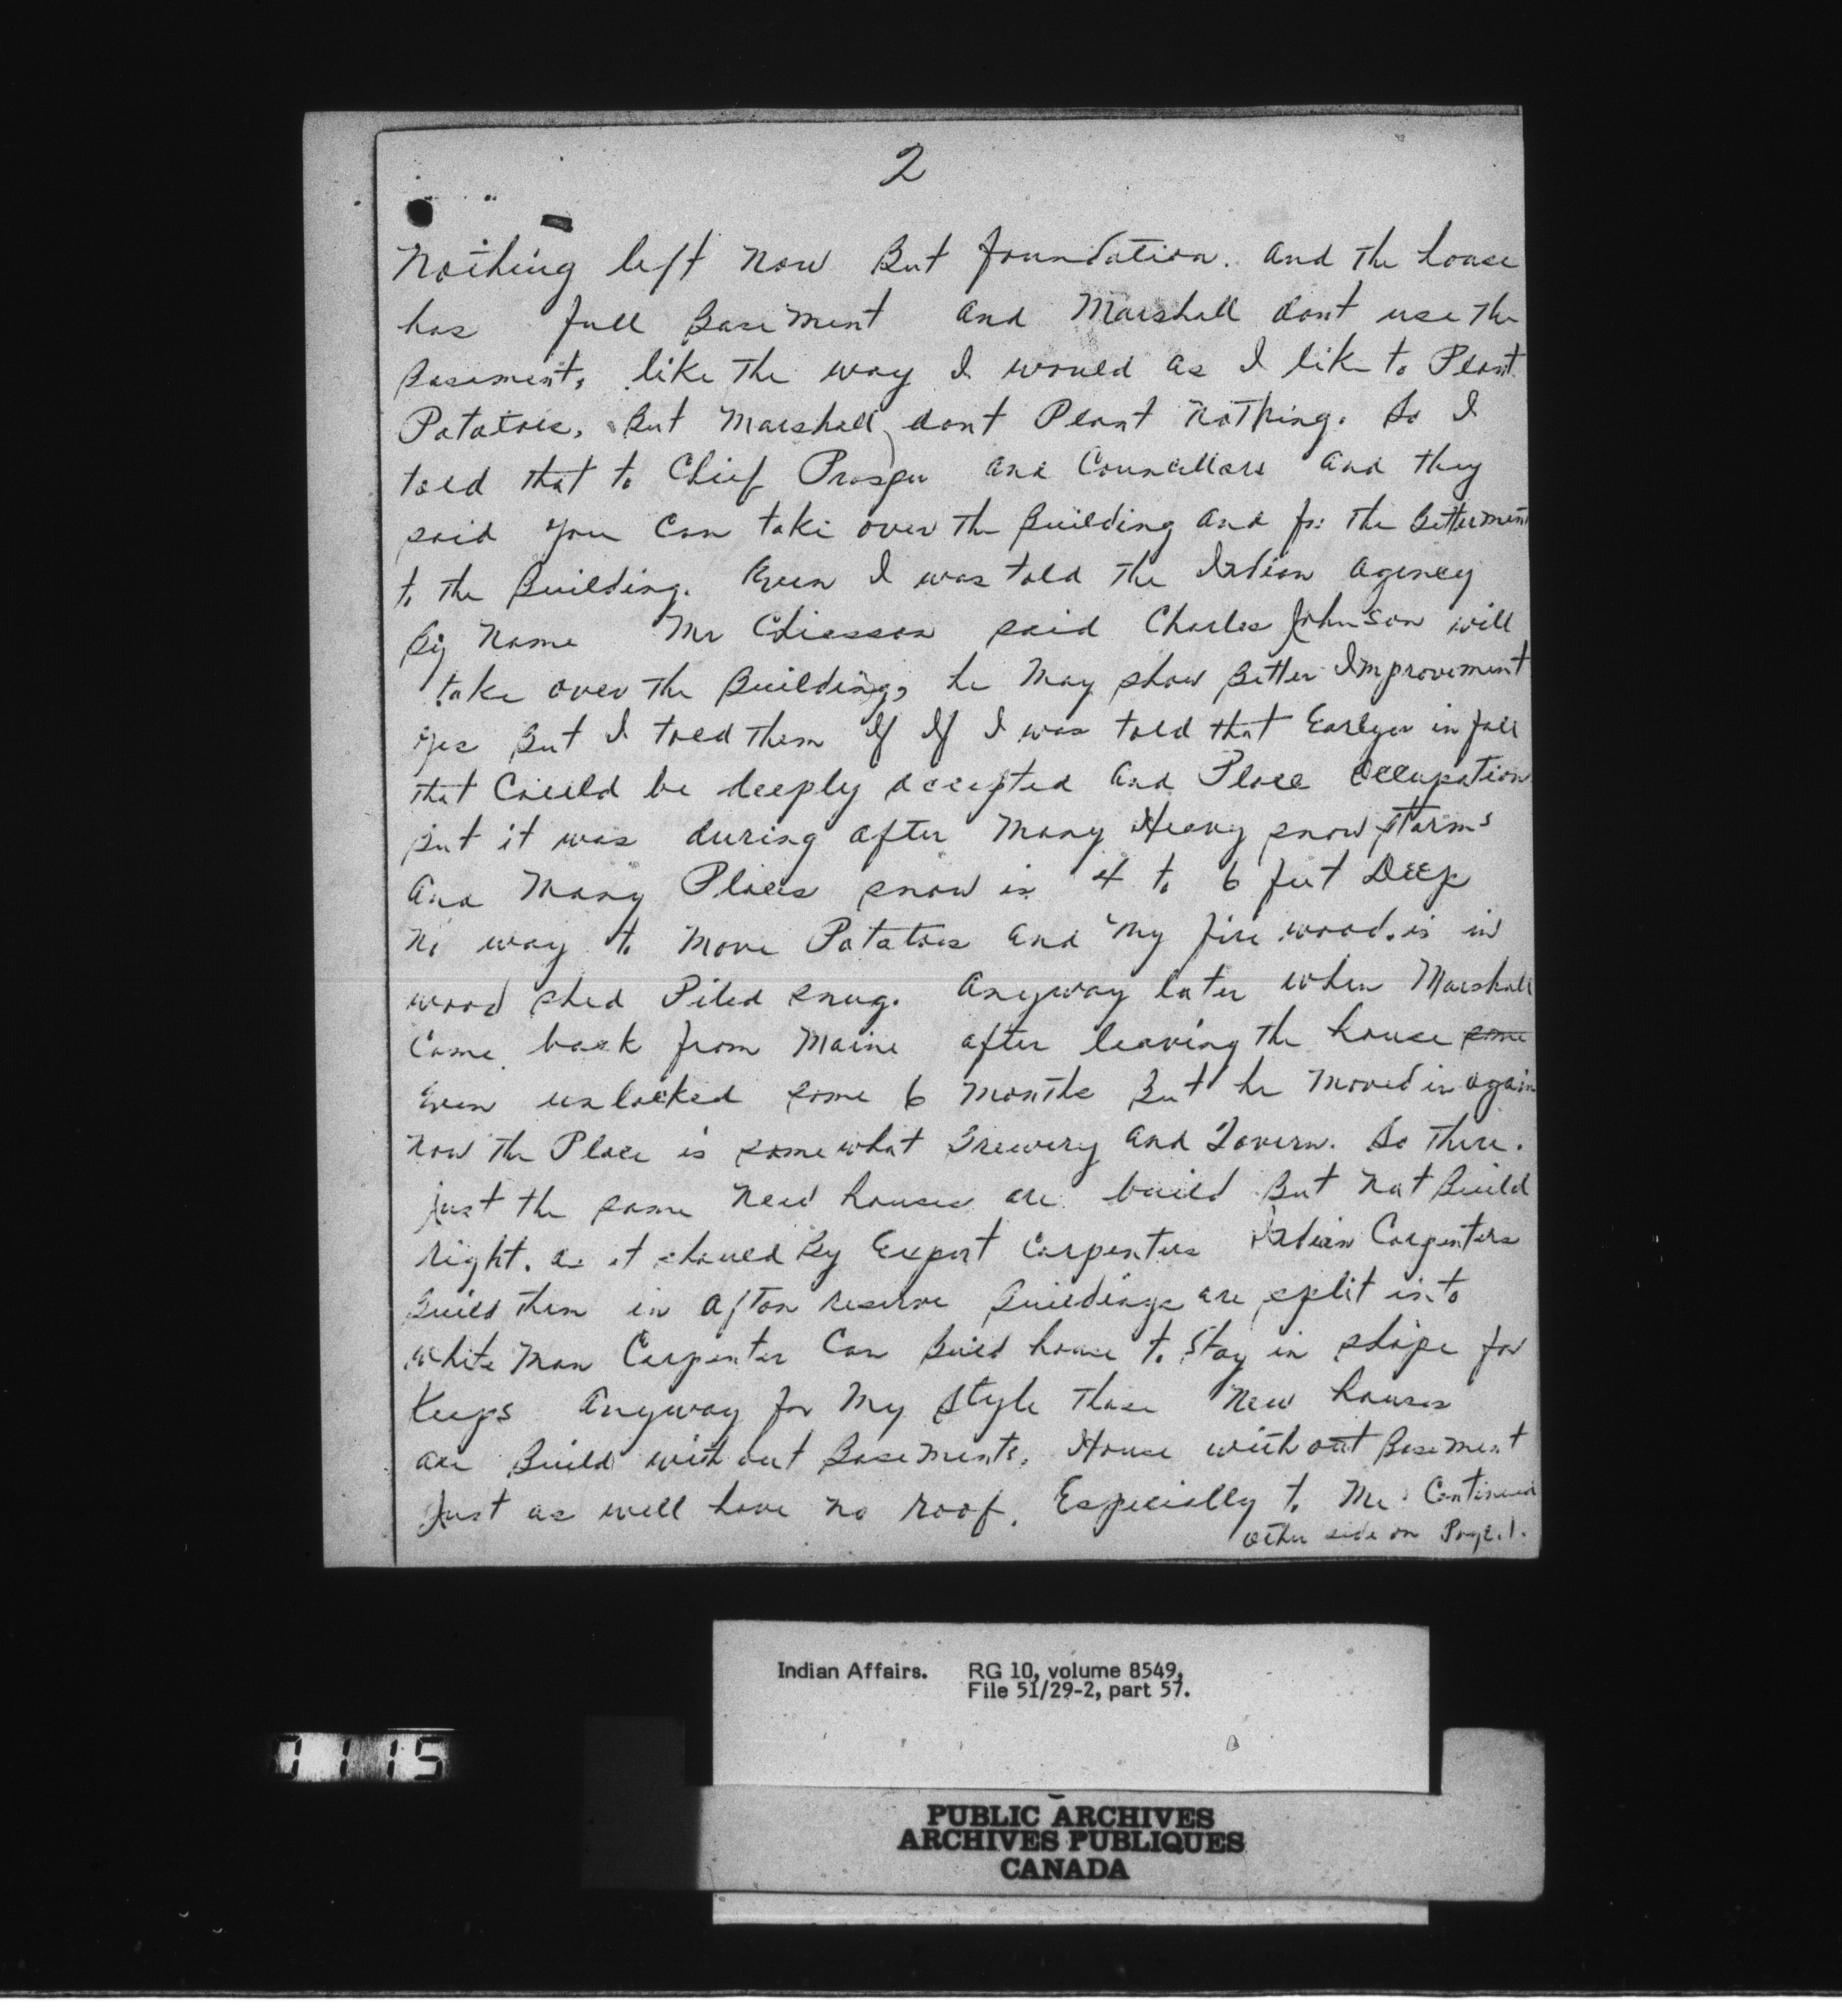 2
Nothing left now But foundation. and the house
has full Basement and Marshall dont use the
Basement, like the way I would as I like to Plant
Potatoes, But Marshall dont Plant nothing. So I
told that to Chief Prosper and Councellors and they
said you Can take over the Building and for the Betterment
to the Building. Even I was told the Indian agency
By name Mr said Charles Johnson will
take over the Building, he may show Better Improvement
yes But I told them If If I was told that Earlyer in fall
that Could be deeply accepted and Place Occupation
But it was during after many Heavy snow storms
and many Places snow is 4 to 6 feet Deep
no way to move Potatoes and my fire wood. is in
wood shed Piled snug. anyway later when Marshall
Came back from Maine after leaving the house some
Even unlocked some 6 months But he moved in again
now the Place is somewhat Brewery and Tavern. So there.
just the same new houses are build But not Build
right. as it should By Expert Carpenters Indian Carpenters
Build them in afton reserve Buildings are split into
white man Carpenter Can Build house to Stay in shape for
Keeps anyway for my style those new houses
are Build without Basements. House without Basement
Just as well have no roof. Especially to Me. Continued
other side on Page.1.
Indian Affairs. RG 10, volume 8549,
File 51/29-2, part 57.
01115
PUBLIC ARCHIVES
ARCHIVES PUBLIQUES
CANADA